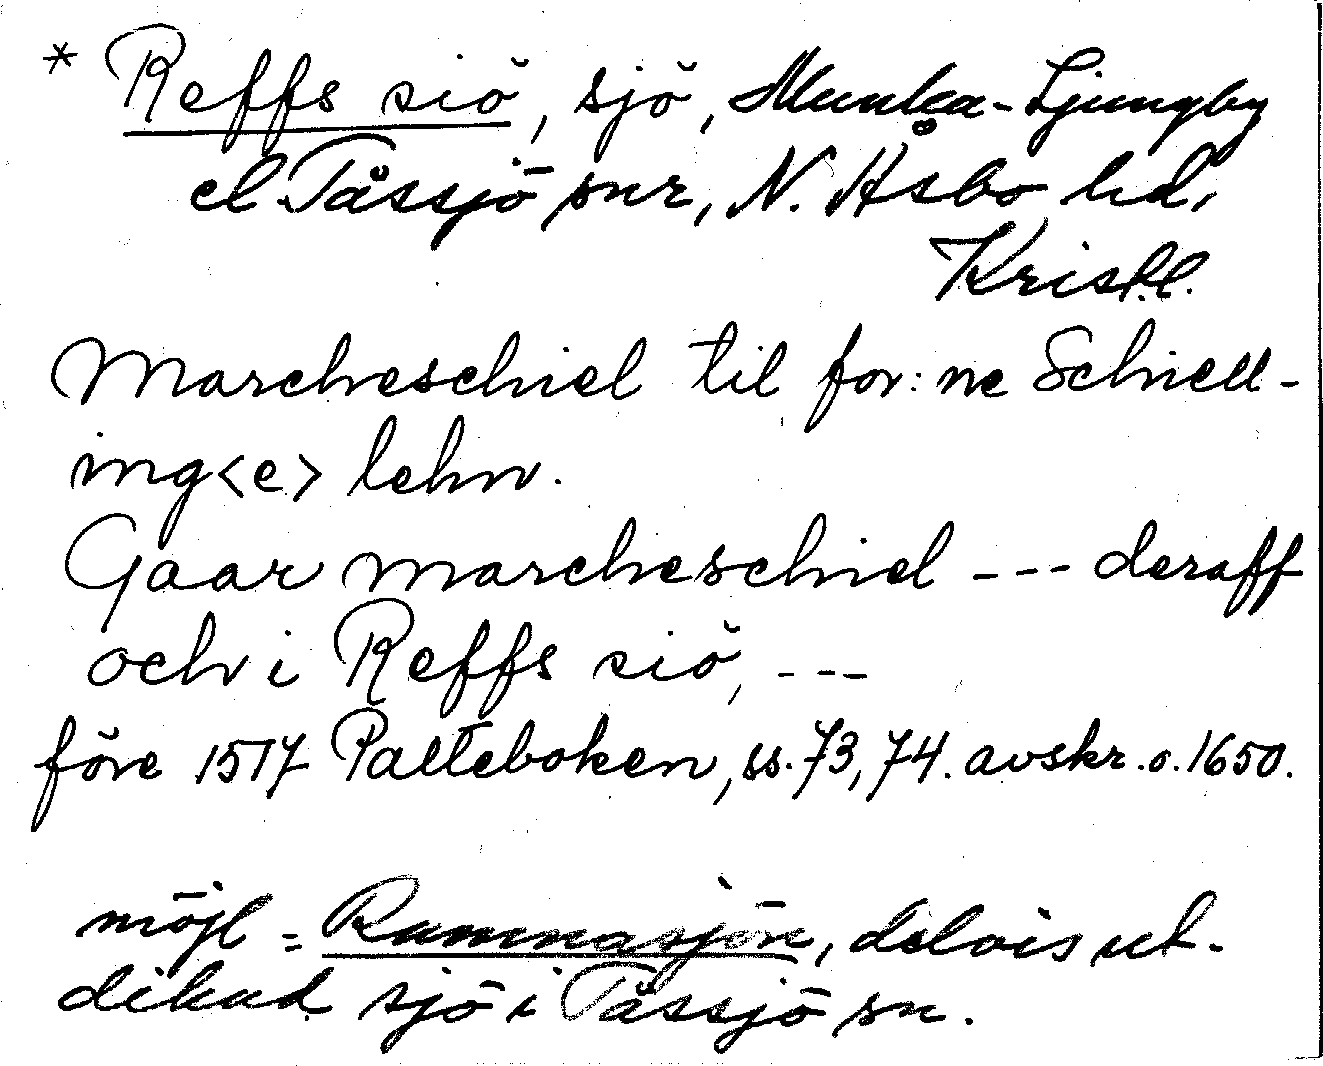 * Reffs siö, sjö, Munka-Ljungby
el Tåssjö snr, N. Åsbo hd,
Krist.l.
Marcheschiel til for:ne Schiell-
ing<e> lehn.
Gaar marcheschiel --- deraff
och i Reffs siö, ---
före 1517 Palteboken, ss. 73, 74. avskr. o. 1650.
möjl = Rammasjön, delvis ut-
dikad sjö i Tåssjö sn.